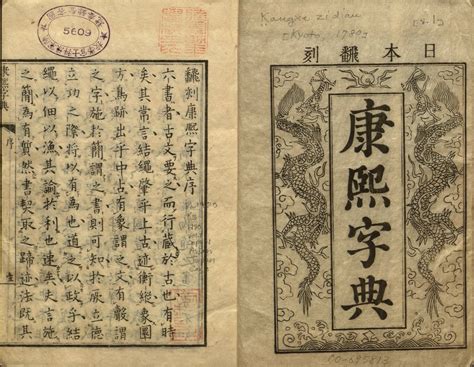 日本翻刻
康熙字典
5609
飜刻康熙字典序
六書者古文要之而行藏於古也有時
矣其常言結繩肇乎上古迹衡縱象圓
方焉跡出乎中古有像謂之文有骸謂
之字施於簡謂之書則可知於 立德
立功之際將以有為也道之以政乎結
繩以佃以漁其諭於利也速矣 言施
之簡為有 然書契取之 迹法既其
康熙字典 序